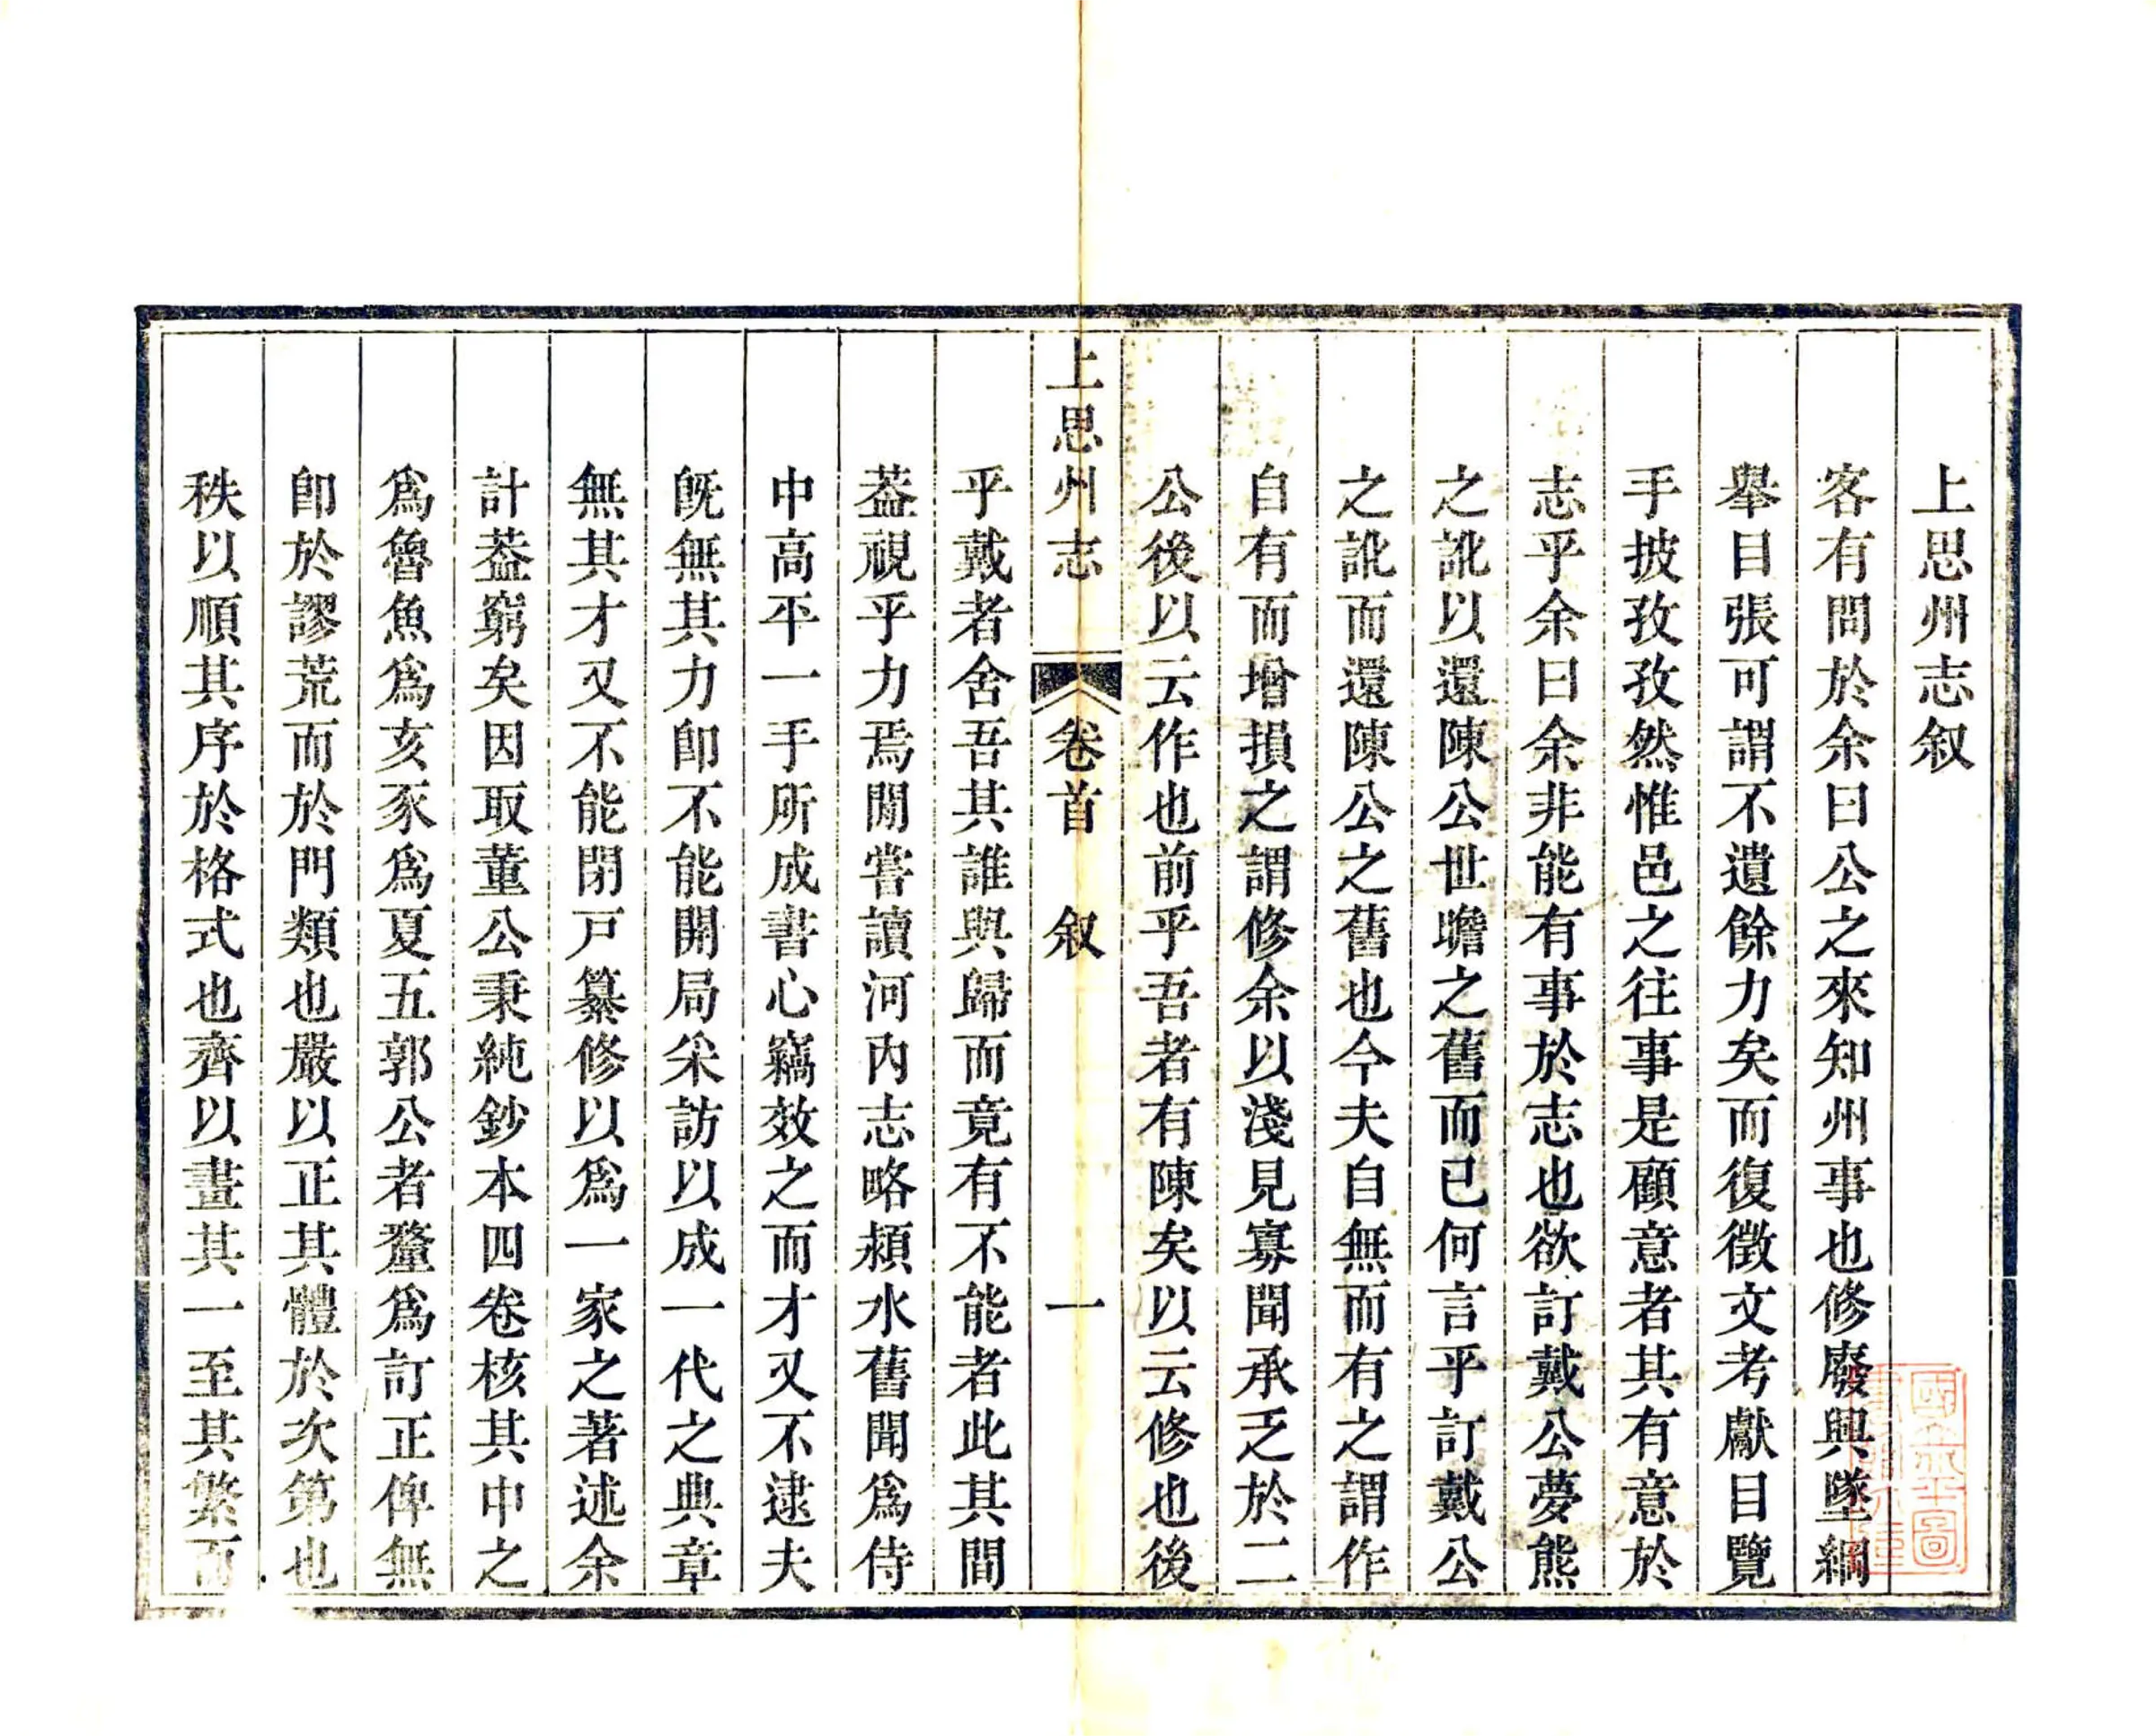 上思州志叙
客有問於余曰公之來知州事也修廢興墜綱
舉目張可謂不遺餘力矣而復徵文考獻目覽
手披孜孜然惟邑之往事是顧意者其有意於
志乎余曰余非能有事於志也欲訂戴公夢熊
之訛以還陳公世瞻之舊而已何言乎訂戴公
之訛而還陳公之舊也今夫自無而有之謂作
自有而增損之謂修余以淺見寡聞承乏於二
公後以云作也前乎吾者有陳矣以云修也後
上思州志 卷首 叙 一
乎戴者舍吾其誰與歸而竟有不能者此其間
葢視乎力焉閒嘗讀河内志略潁水舊聞爲侍
中高平一手所成書心竊效之而才又不逮夫
旣無其力卽不能開局采訪以成一代之典章
無其才又不能閉戸纂修以爲一家之著述余
計葢窮矣因取董公秉純鈔本四卷核其中之
爲魯魚爲亥豕爲夏五郭公者釐爲訂正俾無
卽於謬荒而於門類也嚴以正其體於次第也
秩以順其序於格式也齊以畫其一至其繁而